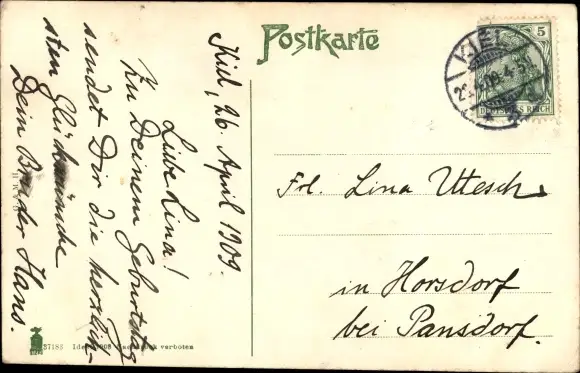 Postkarte
KIEL
5
DEUTSCHES REICH
Kiel, 26. April 1909.
Liebe Lina!
Zu Deinem Geburtstag
sendet Dir die herzlich-
sten Glückwünsche
Dein Bruder Hans.
Frl. Lina Utesch
in Horsdorf
bei Pansdorf.
37183
verboten